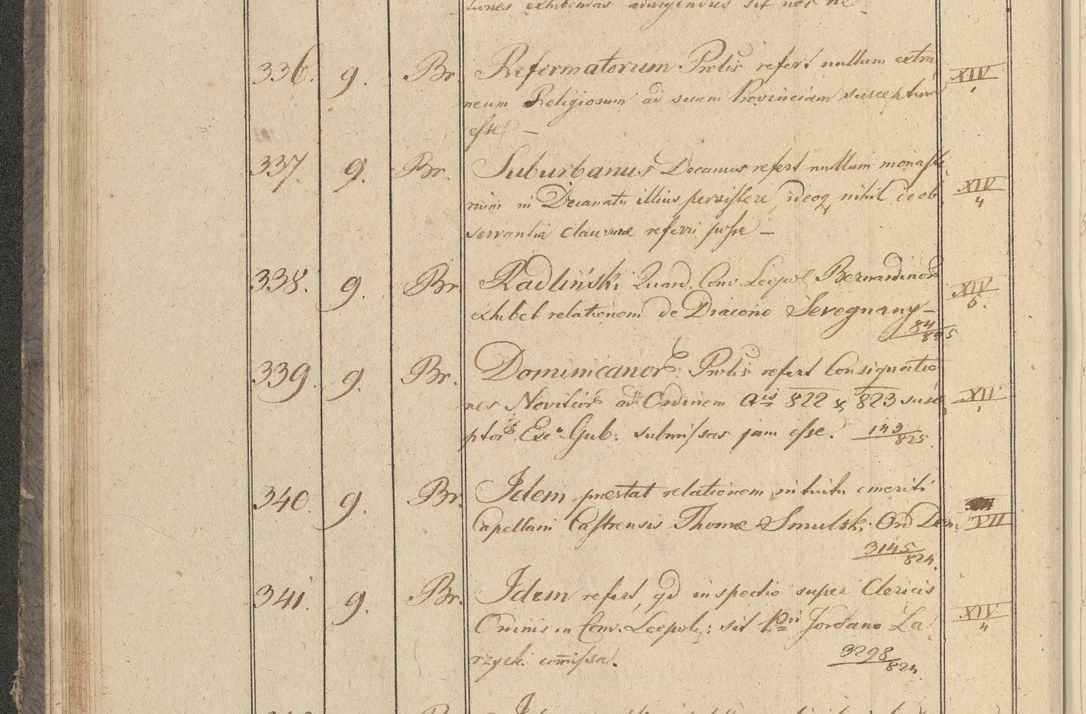 tiones exhibendas adurgendus sit nec ne
336. 9. Br. Reformatorum Provlis refert nullum extra XIV
neum Religiosum ad suam Provinciam susceptum 1
esse –
337. 9. Br. Suburbanus Decanus refert nullum monaste XIV
rium in Decanatu illius persistere, ideoq nihil de ob 4
servantia clausurae referri posse –
338. 9. Br. Radliński Quard. Conv. Leopol. Bernardinor XIV
exhibet relationem de Diacono Sevegnany – 5.
84/825
339. 9. Br. Dominicanor Provlis refert Consignatio
nes Novitior ad Ordinem Ais 822 & 823 susce XIV
ptor Exc. Gub: submissas jam esse. 143/825 1
340. 9. Br. Idem praestat relationem intuitu emeriti
Capellani Castrensis Thomae Smulsk. Ord Dom. VII
3145/824.
341. 9. Br. Idem refert, qd inspectio super Clericis
Ordinis in Conv. Leopoli: sit Pri Jordano La XIV
rzycki comissa. 3298/824. 4